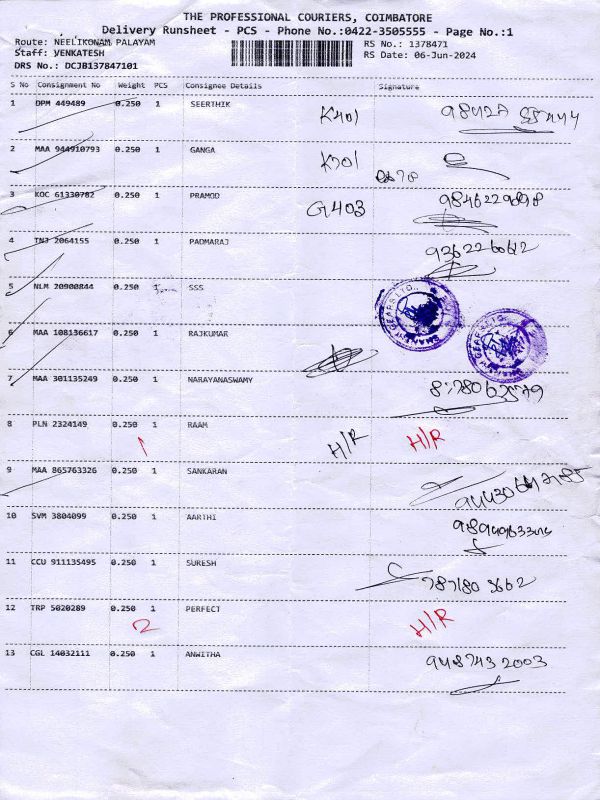 THE PROFESSIONAL COURIERS, COIMBATORE
Delivery Runsheet - PCS - Phone No.:0422-3505555 - Page No.:1
Route: NEELIKONAM PALAYAM RS No.: 1378471
Staff: VENKATESH RS Date: 06-Jun-2024
DRS No.: DCJB137847101
S No Consignment No Weight PCS Consignee Details Signature
1 DPM 449489 0.250 1 SEERTHIK K401
2 MAA 944910793 0.250 1 GANGA K701
3 KOC 61330782 0.250 1 PRAMOD G403
4 TNJ 2064155 0.250 1 PADMARAJ
5 NLM 20900844 0.250 1 SSS
6 MAA 108136617 0.250 1 RAJKUMAR
7 MAA 301135249 0.250 1 NARAYANASWAMY
8 PLN 2324149 0.250 1 RAAM H/R H/R
1
9 MAA 865763326 0.250 1 SANKARAN
10 SVM 3804099 0.250 1 AARTHI
11 CCU 911135495 0.250 1 SURESH 787180 3662
12 TRP 5020289 0.250 1 PERFECT H/R
2
13 CGL 14032111 0.250 1 ANWITHA 9487432003